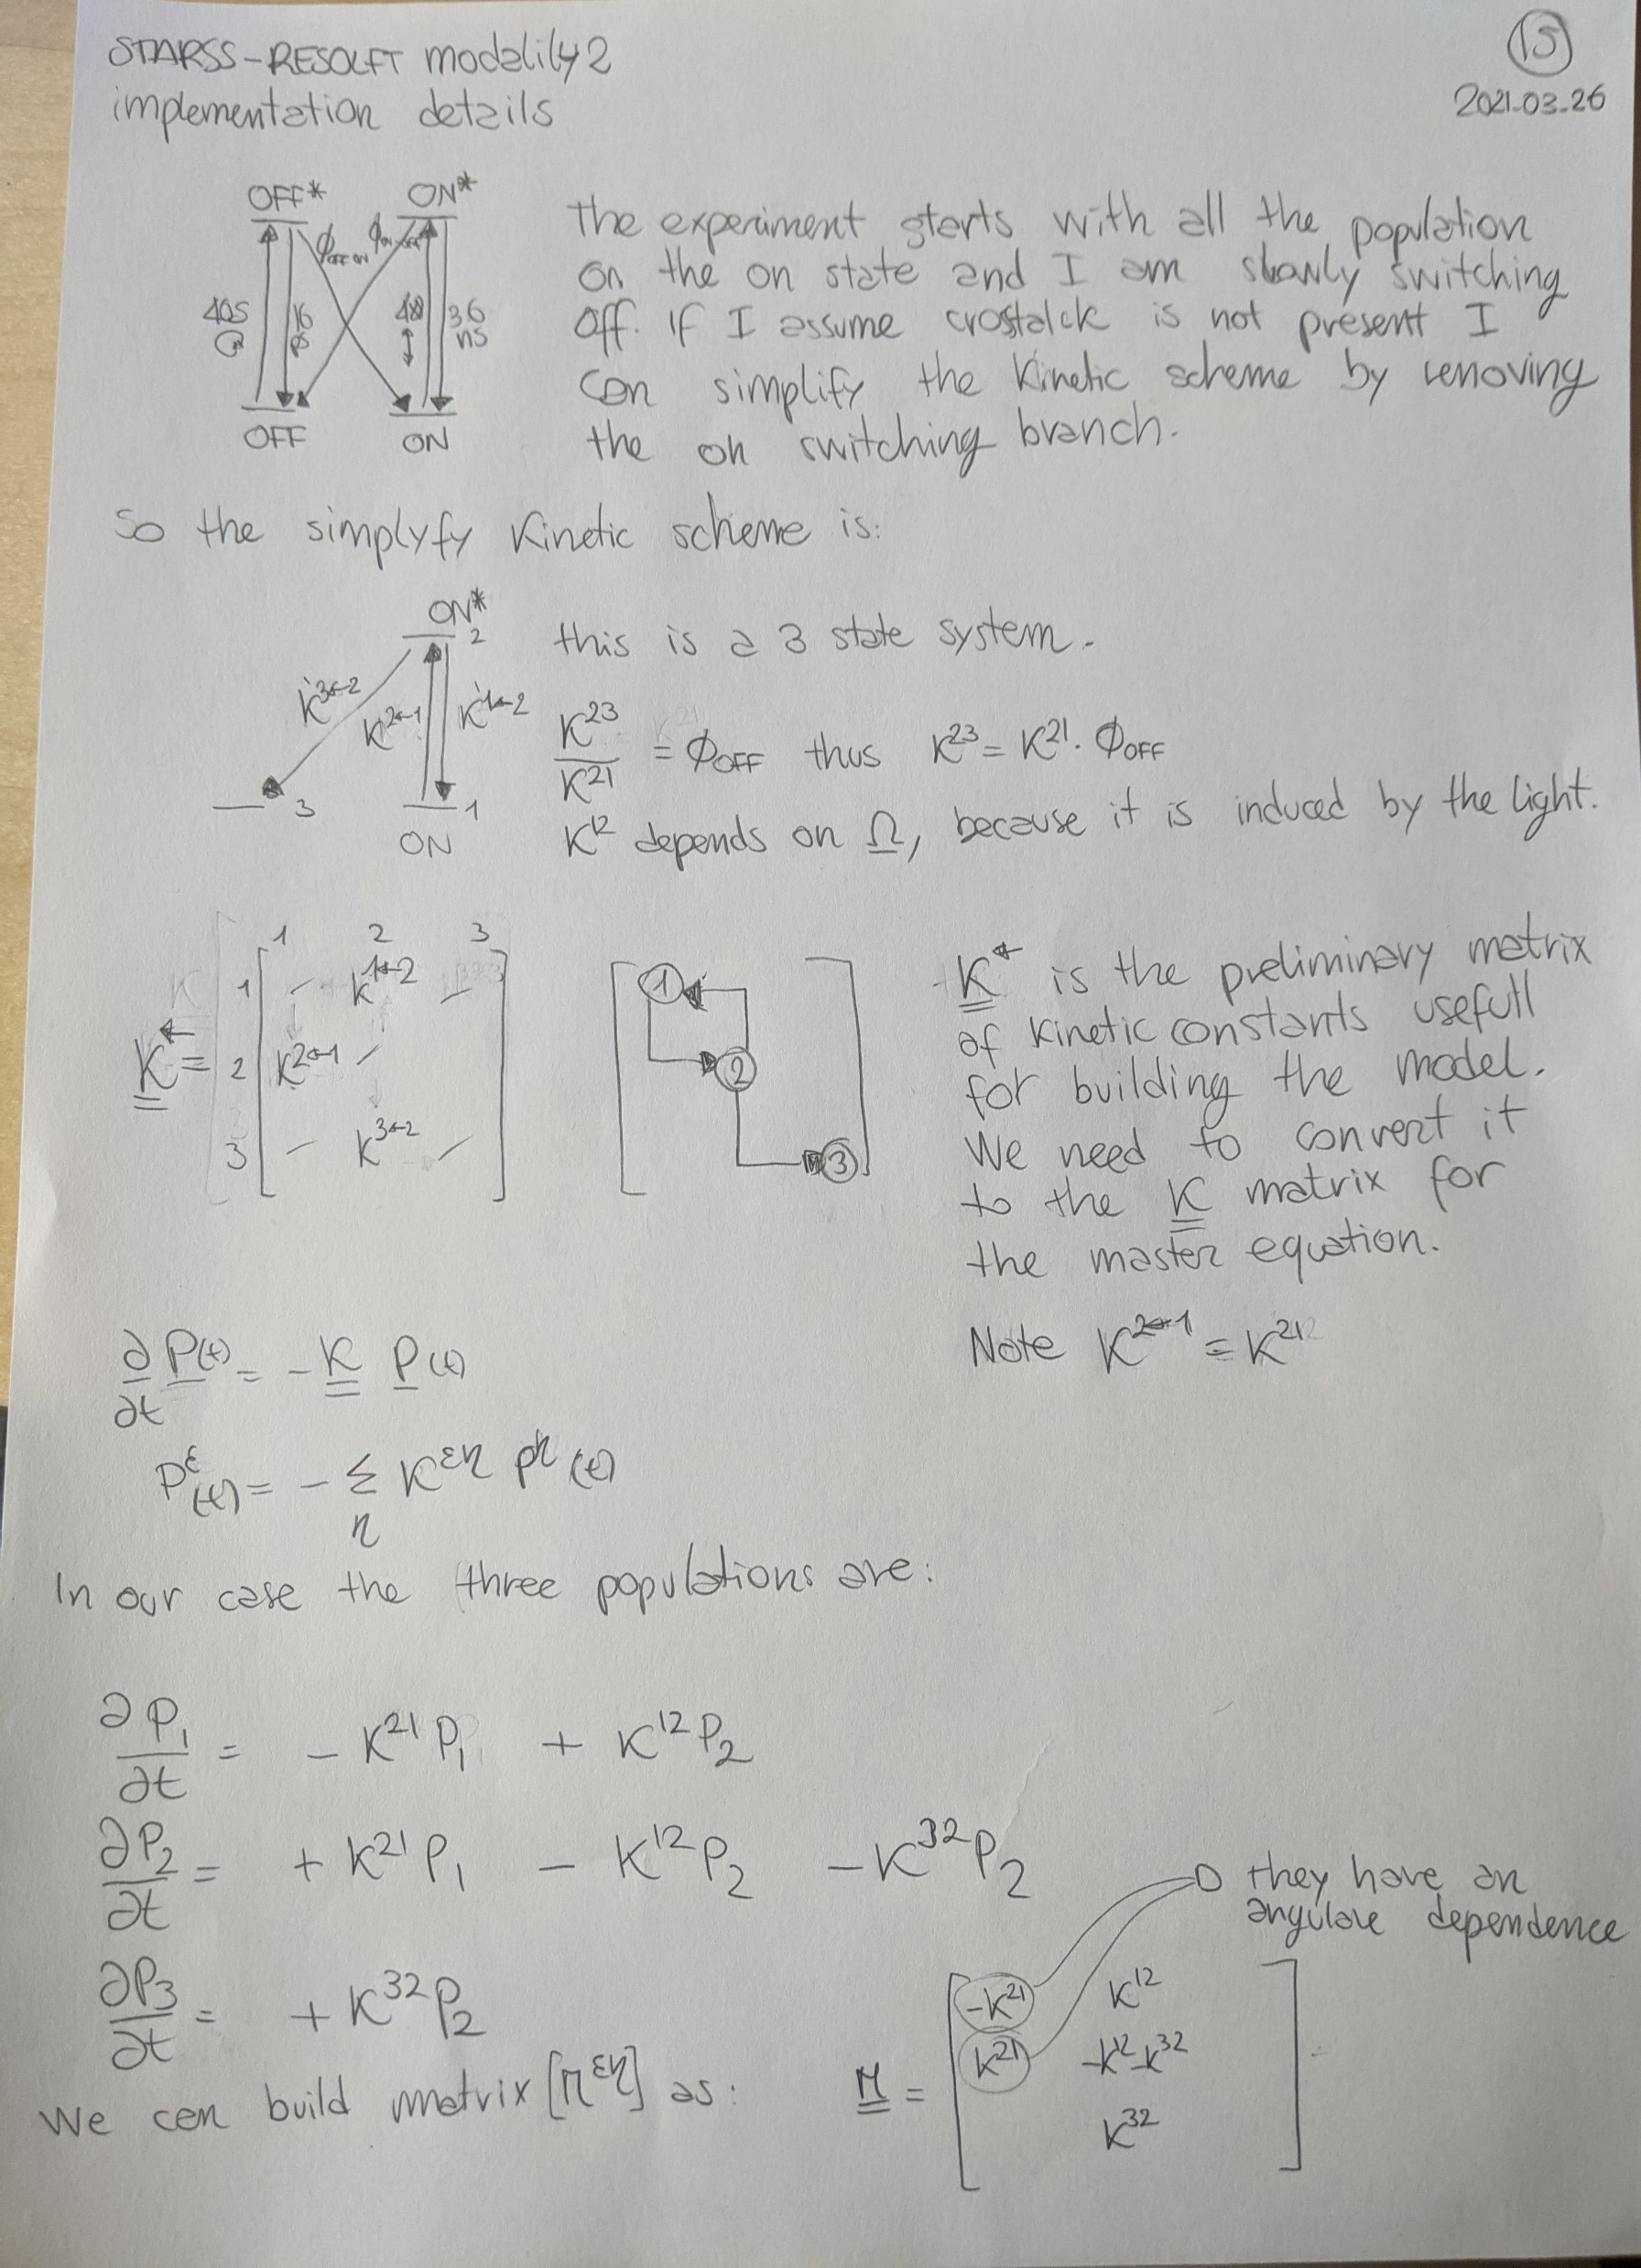 STARSS-RESOLFT modality 2
implementation details
15
2021-03-26
OFF* ON*
405 16 ps 488 3.6 ns
OFF ON
The experiment starts with all the population
on the on state and I am slowly switching
off. If I assume crostalck is not present I
can simplify the kinetic scheme by removing
the on switching branch.
So the simplyfy kinetic scheme is:
ON*
2
K^{3←2} K^{2←1} K^{1←2}
3 1
ON
this is a 3 state system.
K^{23} / K^{21} = Ø_{OFF} thus K^{23} = K^{21} · Ø_{OFF}
K^{12} depends on Ω, because it is induced by the light.
1 2 3
1 - K^{1←2} -
K^← = 2 K^{2←1} -
3 - K^{3←2} -
1
2
3
K^← is the preliminary matrix
of kinetic constants usefull
for building the model.
We need to convert it
to the K matrix for
the master equation.
Note K^{2←1} = K^{21}
∂P(t)/∂t = - K P(t)
P^ε(t) = - Σ_η K^{εη} P^η(t)
In our case the three populations are:
∂P_1/∂t = - K^{21} P_1 + K^{12} P_2
∂P_2/∂t = + K^{21} P_1 - K^{12} P_2 - K^{32} P_2
they have an
angulare dependence
∂P_3/∂t = + K^{32} P_2
We can build matrix [M^{εη}] as: M =
-K^{21} K^{12}
K^{21} -K^{12}-K^{32}
K^{32}